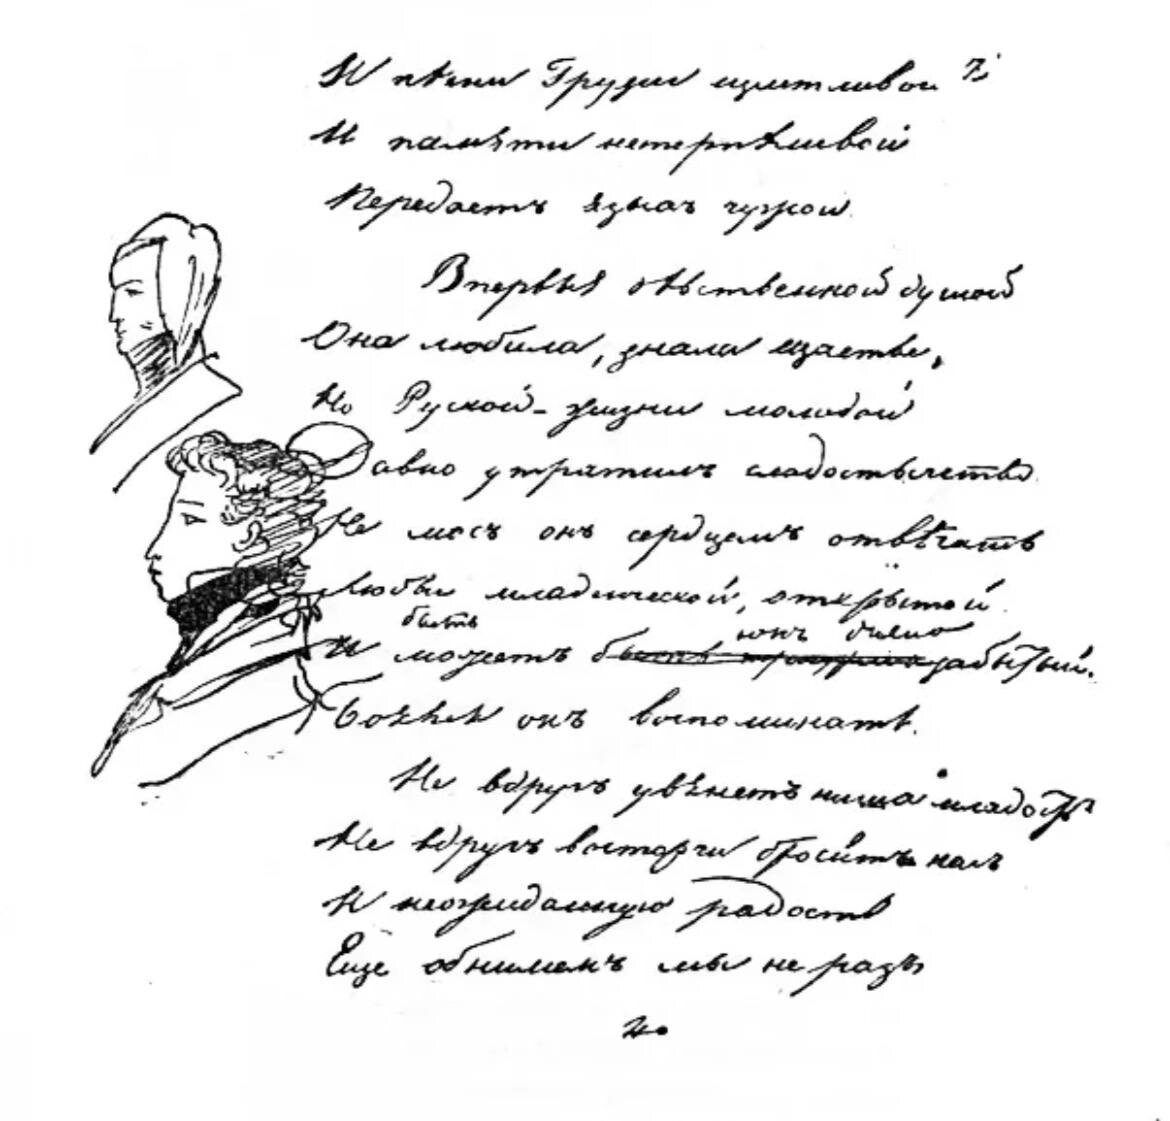 И пѣсни Грузіи щастливой 7)
И памяти нетерпѣливой
Передаетъ языкъ чужой.
Впервыя дѣвственной душой
Она любила, знала щастье,
Но Руской жизни молодой
Давно утратилъ сладострастье
Не могъ онъ сердцемъ отвѣчать
Любви младенческой, открытой
быть
И можетъ забытый.
Боялся онъ воспоминать.
Не вдругъ увянетъ наша младость
Не вдругъ восторги бросятъ насъ
И неожиданную радость
Еще обнимемъ мы не разъ